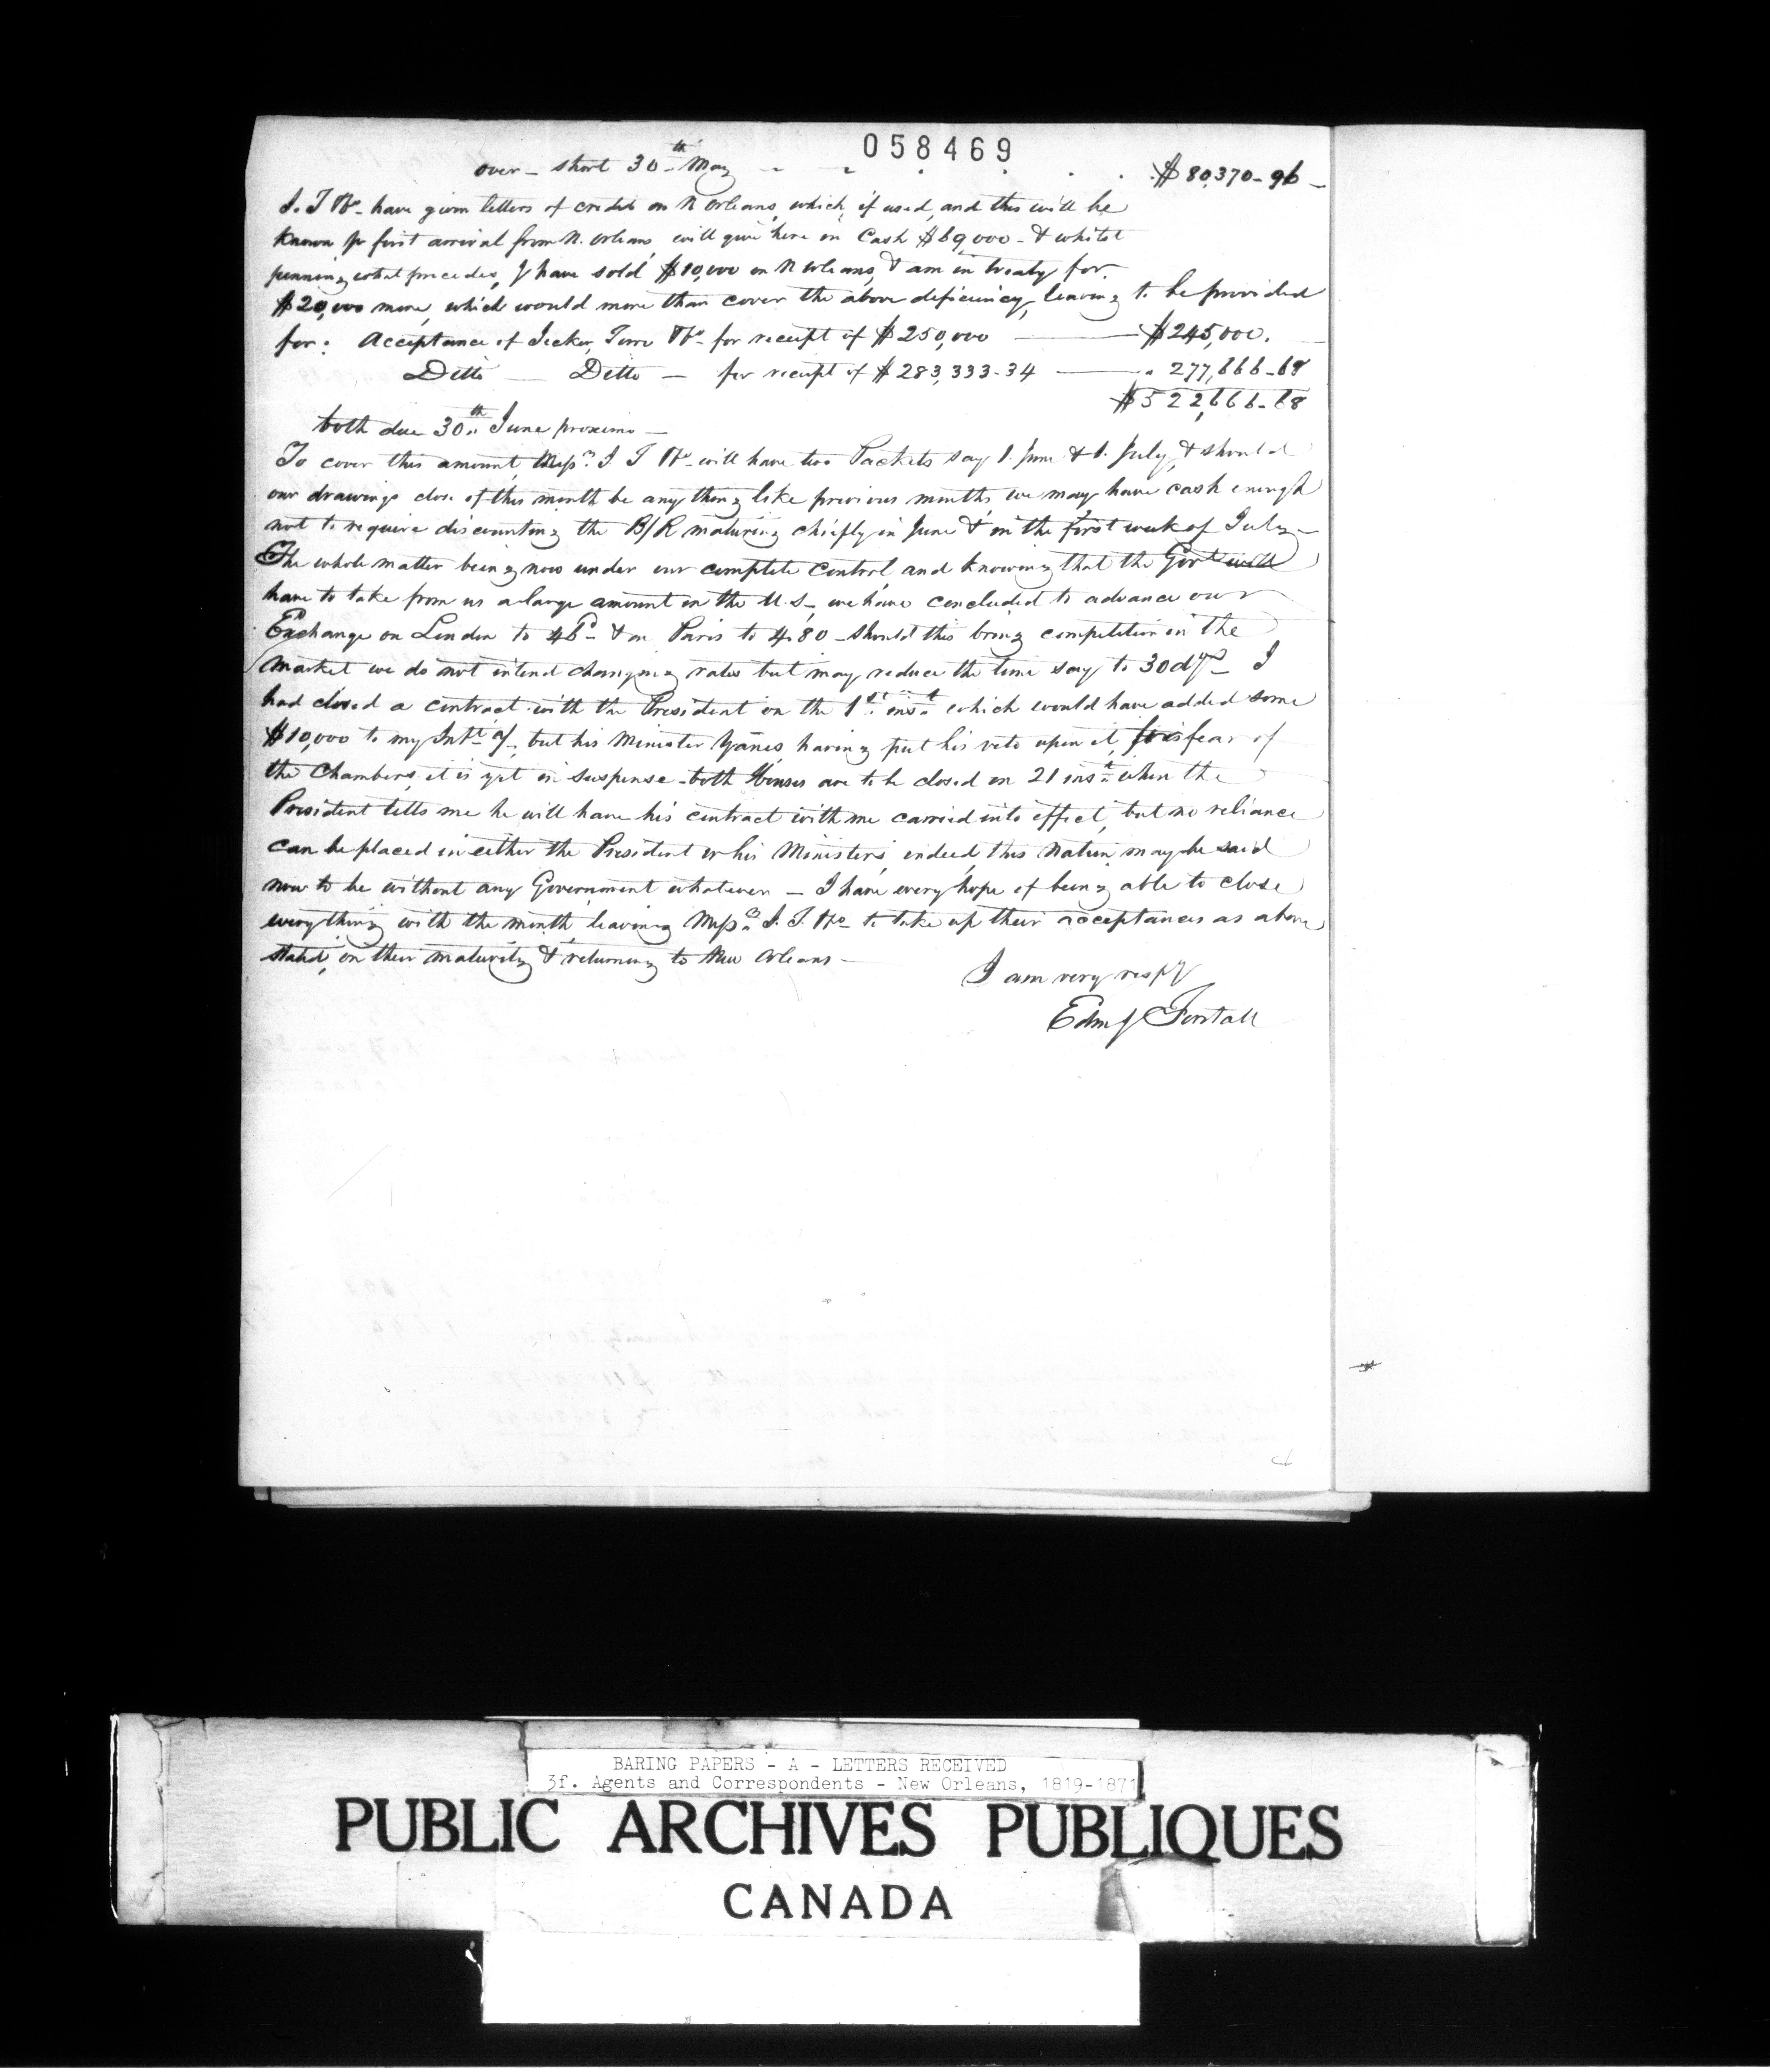 058469
over – short 30th May - - . . . . $80,370-96 –
J. T &Co – have given letters of credit on N Orleans, which, if used, and this will be
known pr first arrival from N. Orleans, will give here in Cash $69,000 – & whilst
penning what precedes, I have sold $10,000 on N Orleans, & am in treaty for
$20,000 more, which would more than cover the above deficiency, leaving to be provided
for: Acceptance of Jecker, Torre &Co – for receipt of $250,000 — $245,000.
Ditto — Ditto — for receipt of $283,333-34 — " 277,666-68
$522,666-68
both due 30th June proximo —
To cover this amount, Messrs J. T &Co – will have two Packets say 1. June & 1. July, & should
our drawings close of this month be any thing like previous months we may have cash enough
not to require discounting the B/R maturing chiefly in June & in the first week of July –
The whole matter being now under our complete control, and knowing that the Govt will
have to take from us a large amount on the U.S –, we have concluded to advance our
Exchange on London to 46d – & on Paris to 4.80 – should this bring competition in the
market we do not intend changing rates but may reduce the time say to 30 d/s – I
had closed a contract with the President on the 1st inst which would have added some
$10,000 to my Intt a/, but his Minister Yañes having put his veto upon it, for fear of
the Chambers, it is yet in suspense – both Houses are to be closed on 21 inst when the
President tells me he will have his contract with me carried into effect, but no reliance
can be placed in either the President or his Ministers, indeed, this Nation may be said
now to be without any Government whatever – I have every hope of being able to close
everything with the month, leaving Messrs J. T. &Co to take up their acceptances as above
stated, on their maturity & returning to New Orleans –
I am very respy
Edm J Forstall
BARING PAPERS - A - LETTERS RECEIVED
3f. Agents and Correspondents - New Orleans, 1819-1871
PUBLIC ARCHIVES PUBLIQUES
CANADA